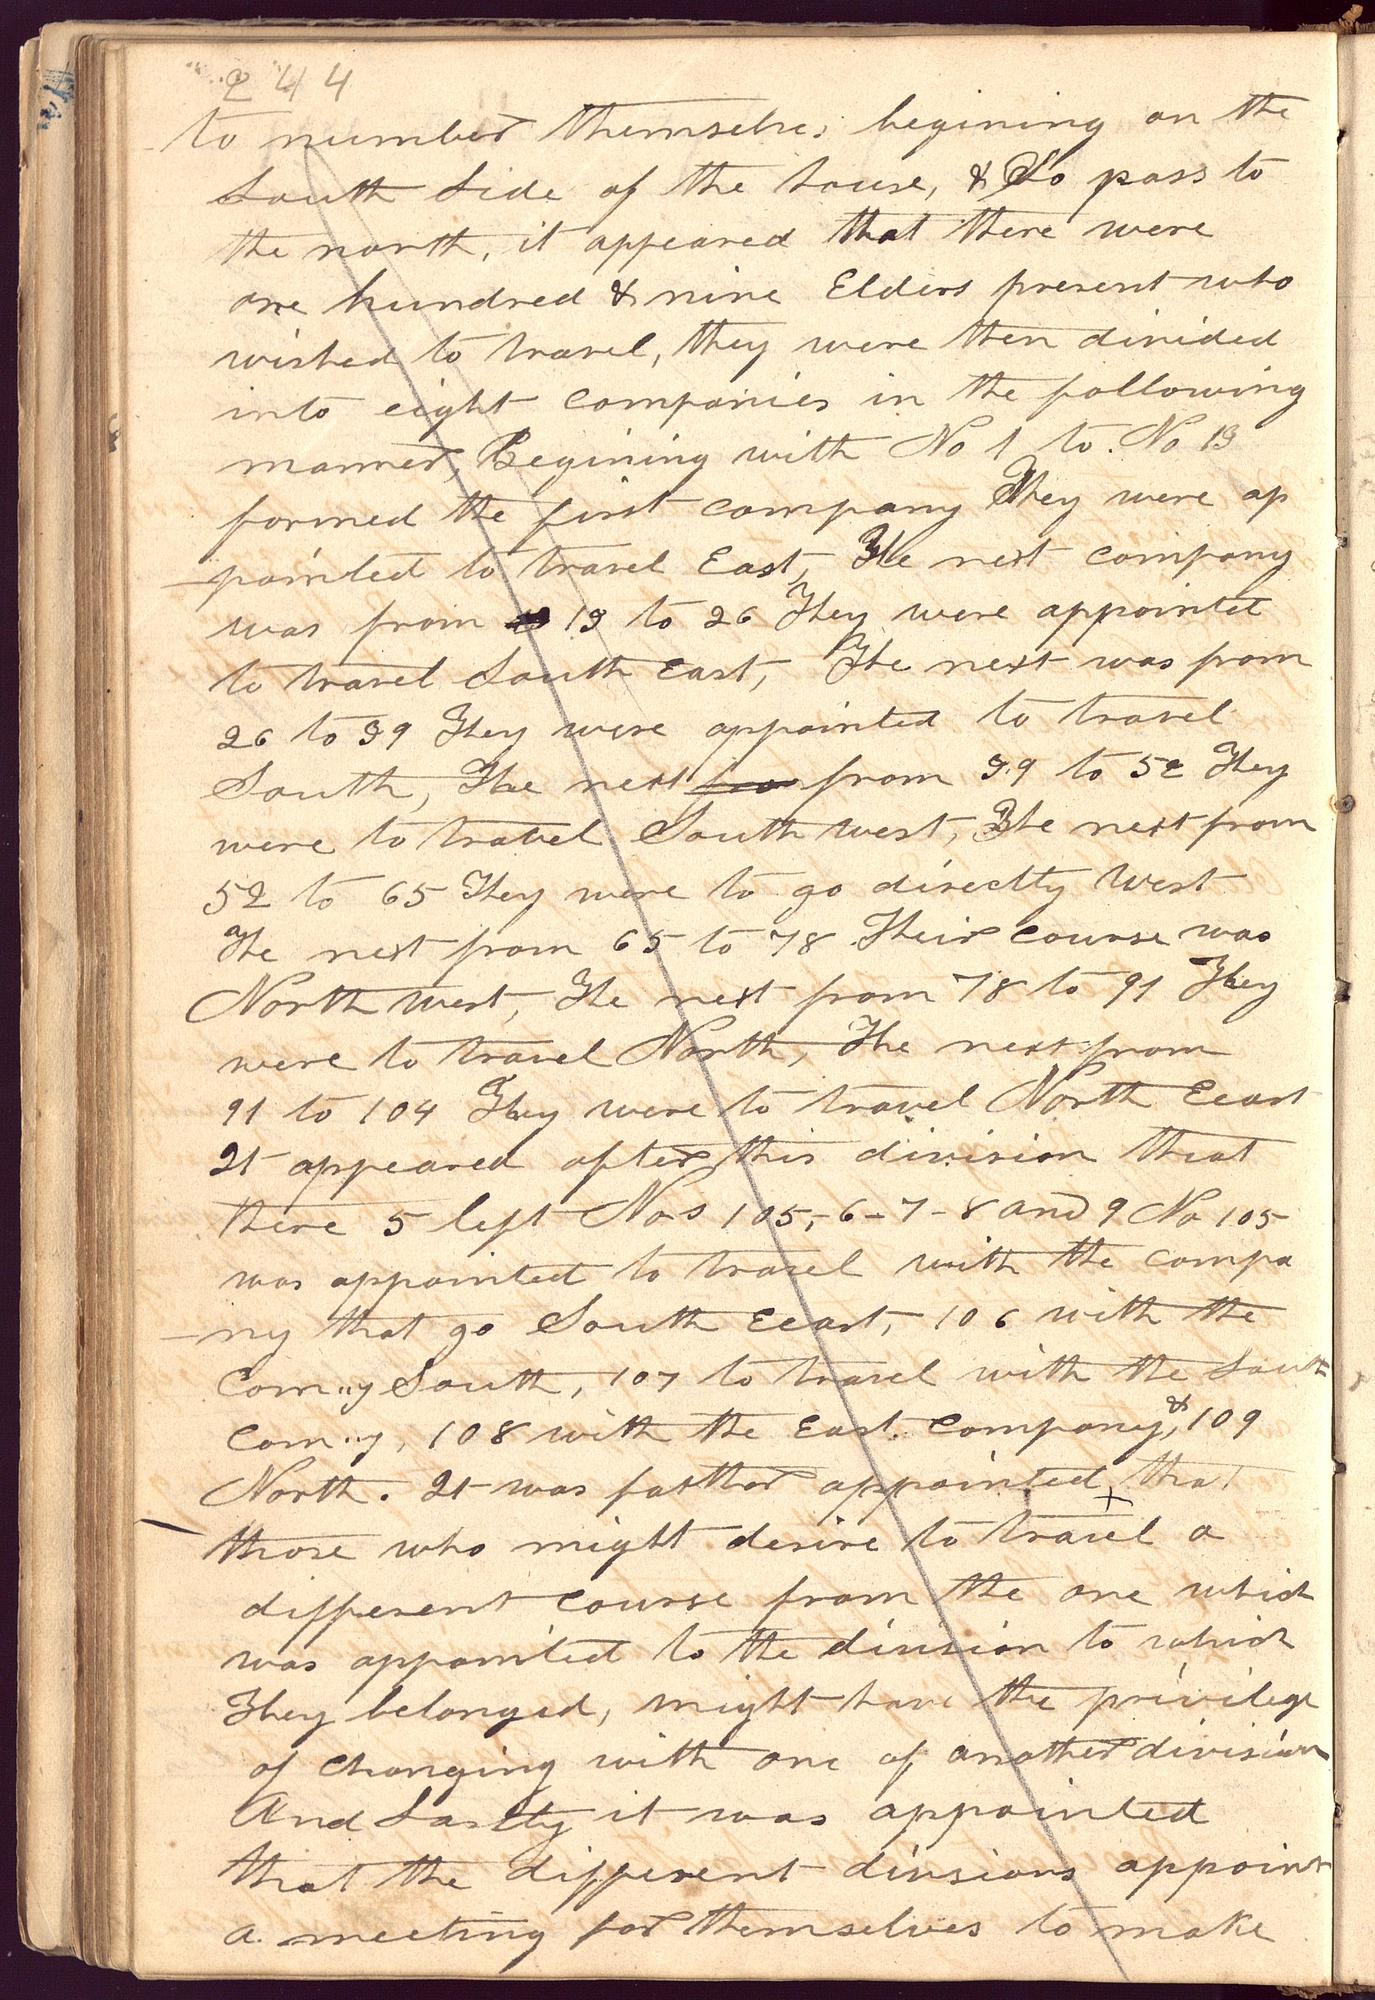 244
to number themselves begining on the
South Side of the house, & So pass to
the north, it appeared that there were
one hundred & nine Elders present who
wished to travel, they were then divided
into eight companies in the following
manner, Begining with No 1 to No 13
formed the first company They were ap
pointed to travel East, The next company
was from 13 to 26 They were appointed
to travel South East, The next was from
26 to 39 They were appointed to travel
South, The next from from 39 to 52 They
were to travel South west, The next from
52 to 65 They were to go directly West
The next from 65 to 78 Their course was
North west, The next from 78 to 91 They
were to travel North, The next from
91 to 104 They were to travel North Eeast
It appeared after this division that
there 5 left Nos 105,-6-7-8 and 9 No 105
was appointed to travel with the compa
-ny that go South Eeast, 106 with the
Com..y South, 107 to travel with the South
Com..y, 108 with the East. Company, & 109
North. It was farther appointed, that
those who might desire to travel a
different course from the one which
was appointed to the division to which
They belonged, might have the privilege
of Changing with one of another division
And Lastly it was appointed
that the different divsions appoint
a meeting for themselves to make